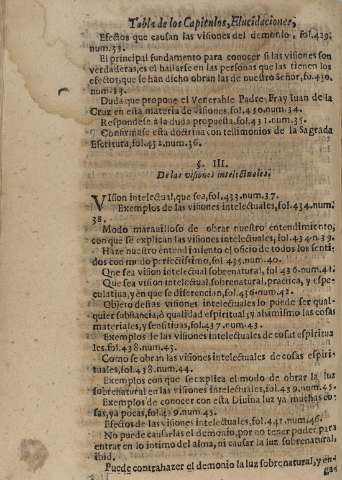 Tabla de los Capitulos, Elucidaciones,
Efectos que causan las visiones del demonio, fol.429.
num.33.
El principal fundamento para conocer si las visiones son
verdaderas, es el hallarse en las personas que las tienen los
efectos, que se han dicho obran las de nuestro Señor, fo.430.
num.33.
Duda que propone el Venerable Padre Fray Iuan de la
Cruz en esta materia de visiones, fol.450.num.34.
Respondese à la duda propuesta, fol.431.num.35.
Confirmase esta doctrina con testimonios de la Sagrada
Escritura, fol.432.num.36.
§. III.
De las visiones intelectuales.
VIsion intelectual, que sea, fol.433.num.37.
Exemplos de las visiones intelectuales, fol.434.num.
38.
Modo maravilloso de obrar nuestro entendimiento,
con que se explican las visiones intelectuales, fol.434.n.39.
Haze nuestro entendimiento el oficio de todos los senti-
dos con modo perfectissimo, fol.435.num.40.
Que sea vision intelectual sobrenatural, fol.436.num.41.
Que sea vision intelectual sobrenatural, practica, y espe-
culativa, y en que se diferencian, fol.436.num.42.
Objeto destas visiones intelectuales lo puede ser qual-
quier substancia, ò qualidad espiritual, y assimismo las cosas
materiales, y sensitivas, fol.437.num.43.
Exemplos de las visiones intelectuales de cosas espiritua-
les, fol.438.num.43.
Como se obran las visiones intelectuales de cosas espiri-
tuales, fol.438.num.44.
Exemplos con que se explica el modo de obrar la luz
sobrenatural en las visiones intelectuales, fol.439.num.45.
Exemplos de conocer con esta Divina luz ya muchas co-
sas, ya pocas, fol.439.num.45.
Efectos de las visiones intelectuales, fol.441.num.46.
No puede causarlas el demonio, por no tener poder para
entrar en lo intimo del alma, ni causar la luz sobrenatural,
ibid.
Puede contrahazer el demonio la luz sobrenatural, y en
gas